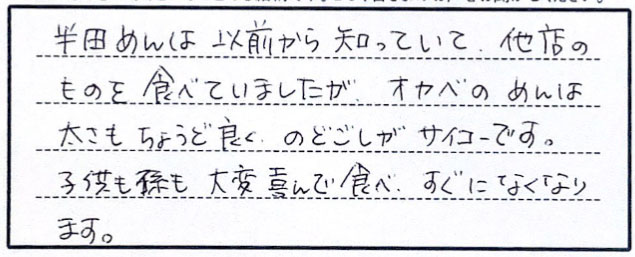 半田めんは以前から知っていて、他店の
ものを食べていましたが、オカベのめんは
太さもちょうど良く、のどごしがサイコーです。
子供も孫も大変喜んで食べ、すぐになくなり
ます。